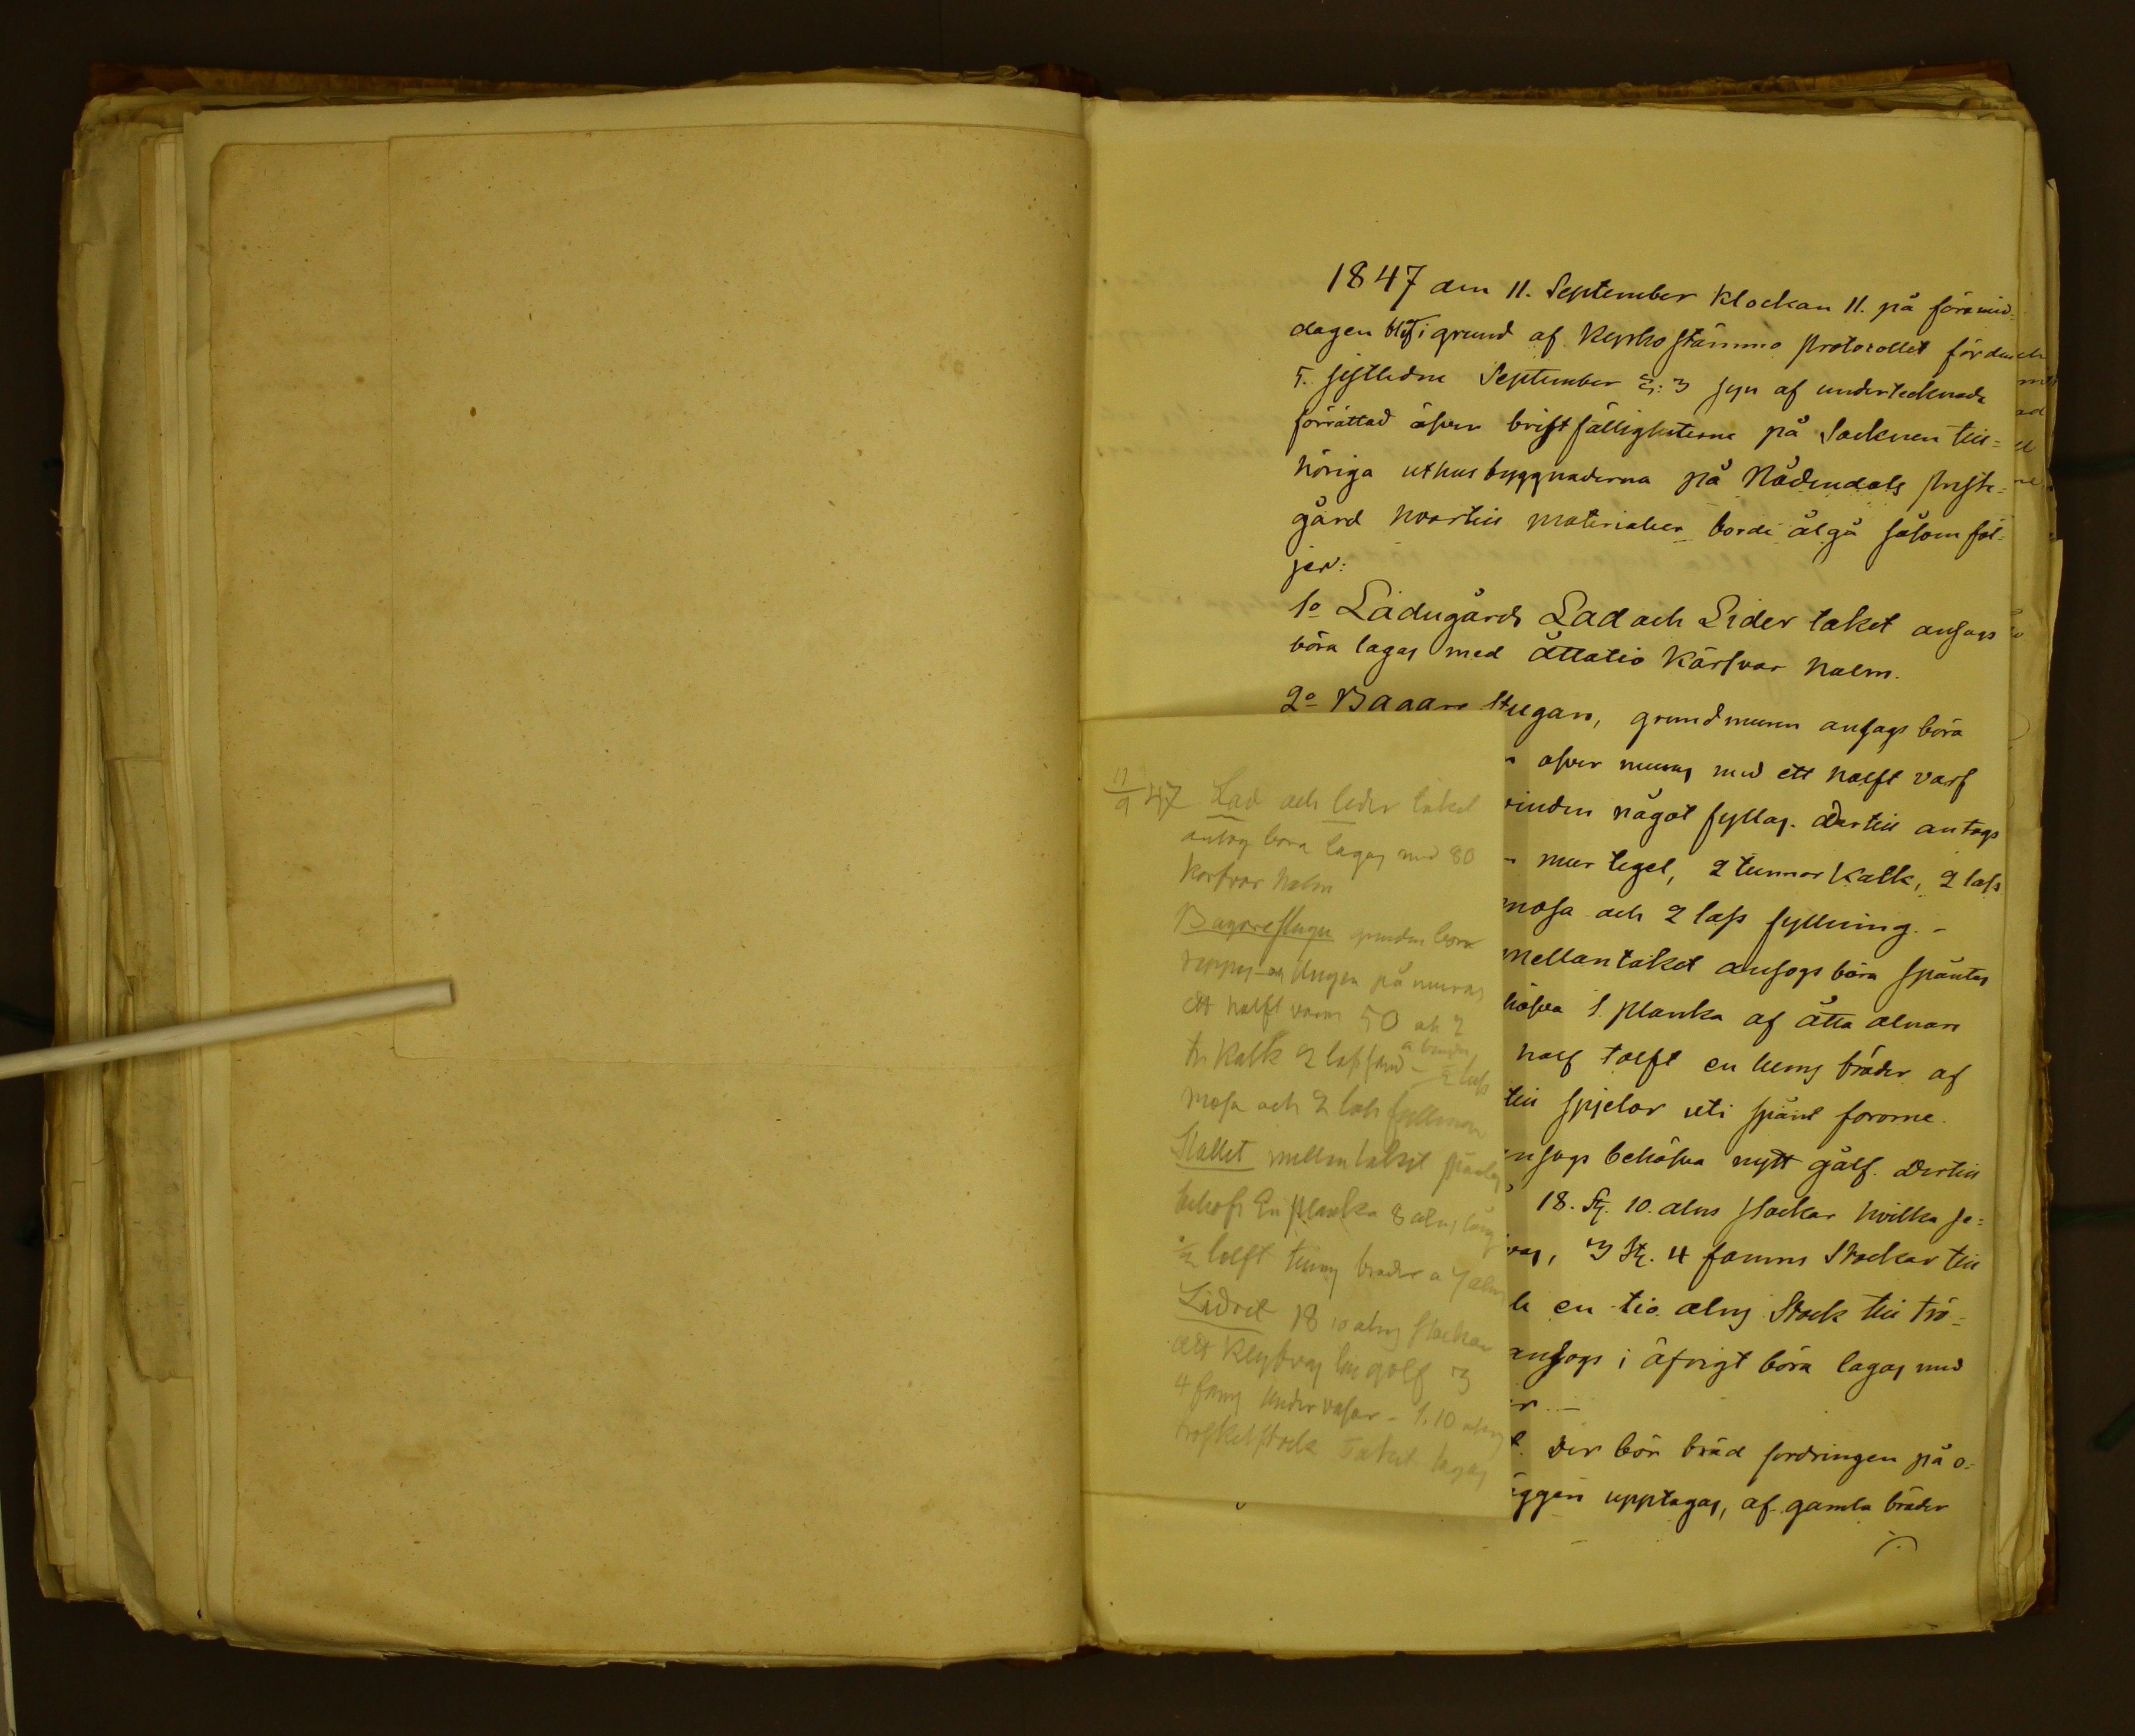 1847 den 11. September Klockan 11. på förmid=
dagen blef i grund af Kyrko stämmo protocollet förd den
5. sistledne September §: 3 syn af undertecknade
förrättad öfver bristfälligheterne på Socknen till=
höriga uthusbyggnaderna på Nådendals preste=
gård hvartill materialier borde åtgå såsom föl=
jer:
1o Ladugårds Lad och Lider taket ansogs
böra lagas med åttatio Kärfvar halm.
2o Bagare Stugan, grundmuren ansags böra
öfver muras med ett halft varf
något fyllas. Dertill antogs
mur tegel, 2 tunnor Kalk, 2 lass
mossa och 2 lass fyllning. -
mellantaket ansogs böra spåntas
höfva 1. planka af åtta alnars
half tolft en tums bräder af
till spjelor uti spånt fororne.
ansogs behöfva nytt gålf. Dertill
18. St. 10. alns stockar hvilka
3 St. 4 famns Stockar till
en tio alns Stock till trö=
ansogs i öfrigt böra lagas med
Der bör bräd fordringen på o=
äggen upptagas, af gamla bräder
11/9 47 Lad och lider taket
antog bora lagas med 80
korfvar halm
Bagarestuga grunden bora
muras
ett halft varm 50 och 2
tr Kalk 2 lass sand - 2 lass
Mossa och 2 lass fyllning
Stallet mellantaket
behofs En planka 8 alns lång
1/2 tolft tums bräder a 7 aln
Lidret 18 10 alns stockar
att klyfvas till golf 3
4 famns under vasar - 1. 10 alns
tröskelstock Taket lagas